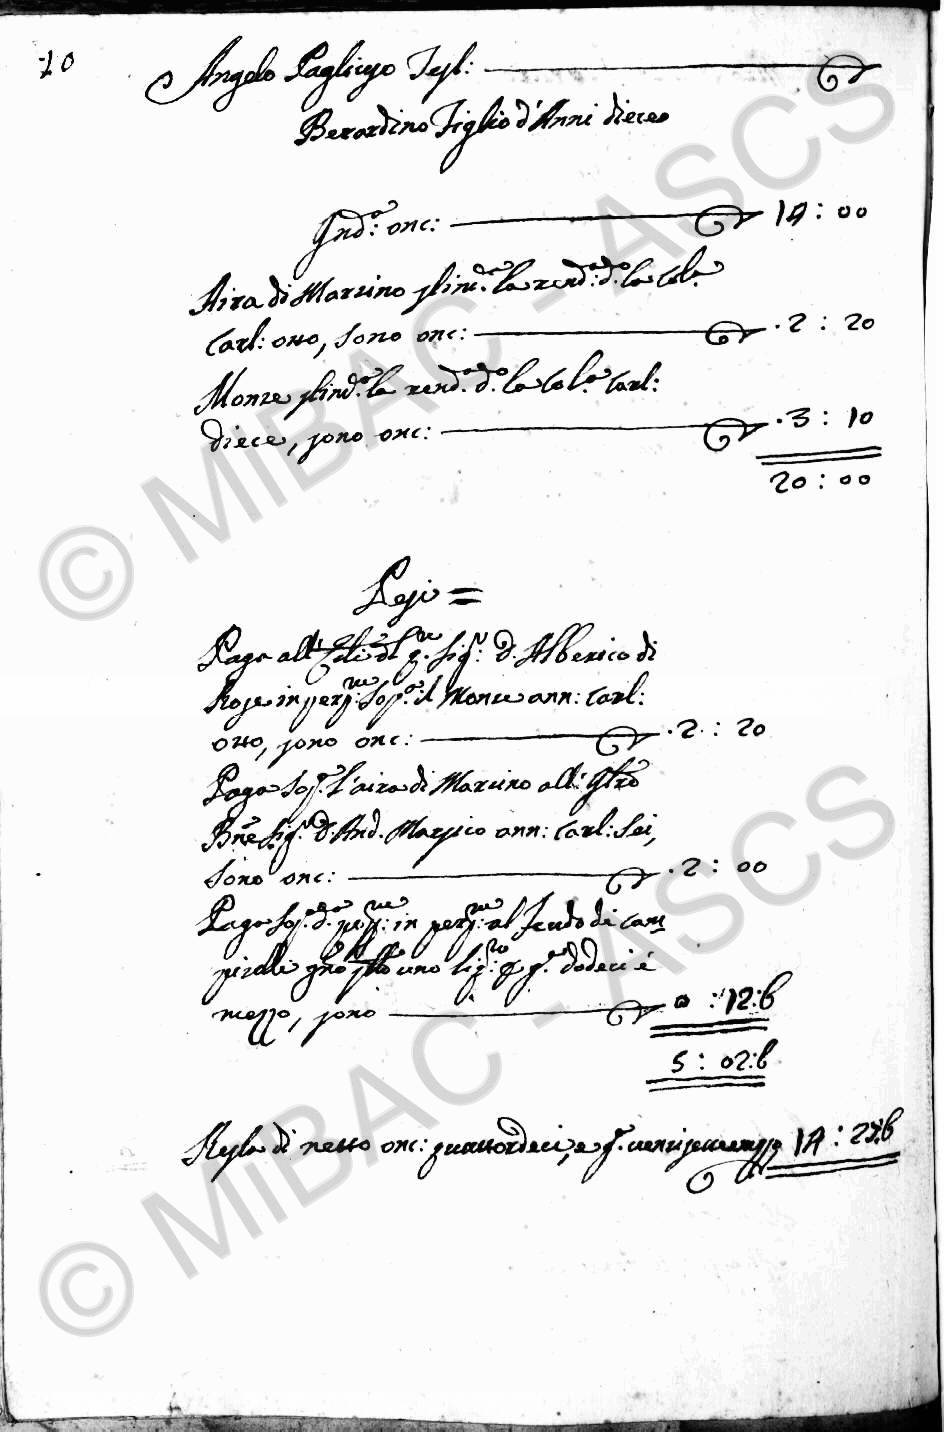 10
Angelo Pagliuso Test:
Berardino Figlio d'Anni diece
Ind.o: onc: 14 : 00
Aira di Marsino la rend: d. la Col.a
Carl: otto, sono onc: .2 : 20
Monte la rend: d. la Col.a Carl:
diece, sono onc: .3 : 10
20 : 00
Pesi =
Paga all' Sig.r D. Alberico di
Rose in perp: Sop.a il Monte ann: Carl:
otto, sono onc: .2 : 20
Paga Sop.a l'aira di Marsino all'
Sig. D. And. Marsico ann: Carl: Sei,
sono onc: .2 : 00
Paga Sop.a d. in perp: al Feudo di Cam
pirelli uno g.a dodeci è
mezzo, sono 0 : 12:6
5 : 02:6
Resta di netto onc: quattordeci, e g.a ventisettemezzo 14 : 27:6
© MiBAC - ASCS
© MiBAC - ASCS